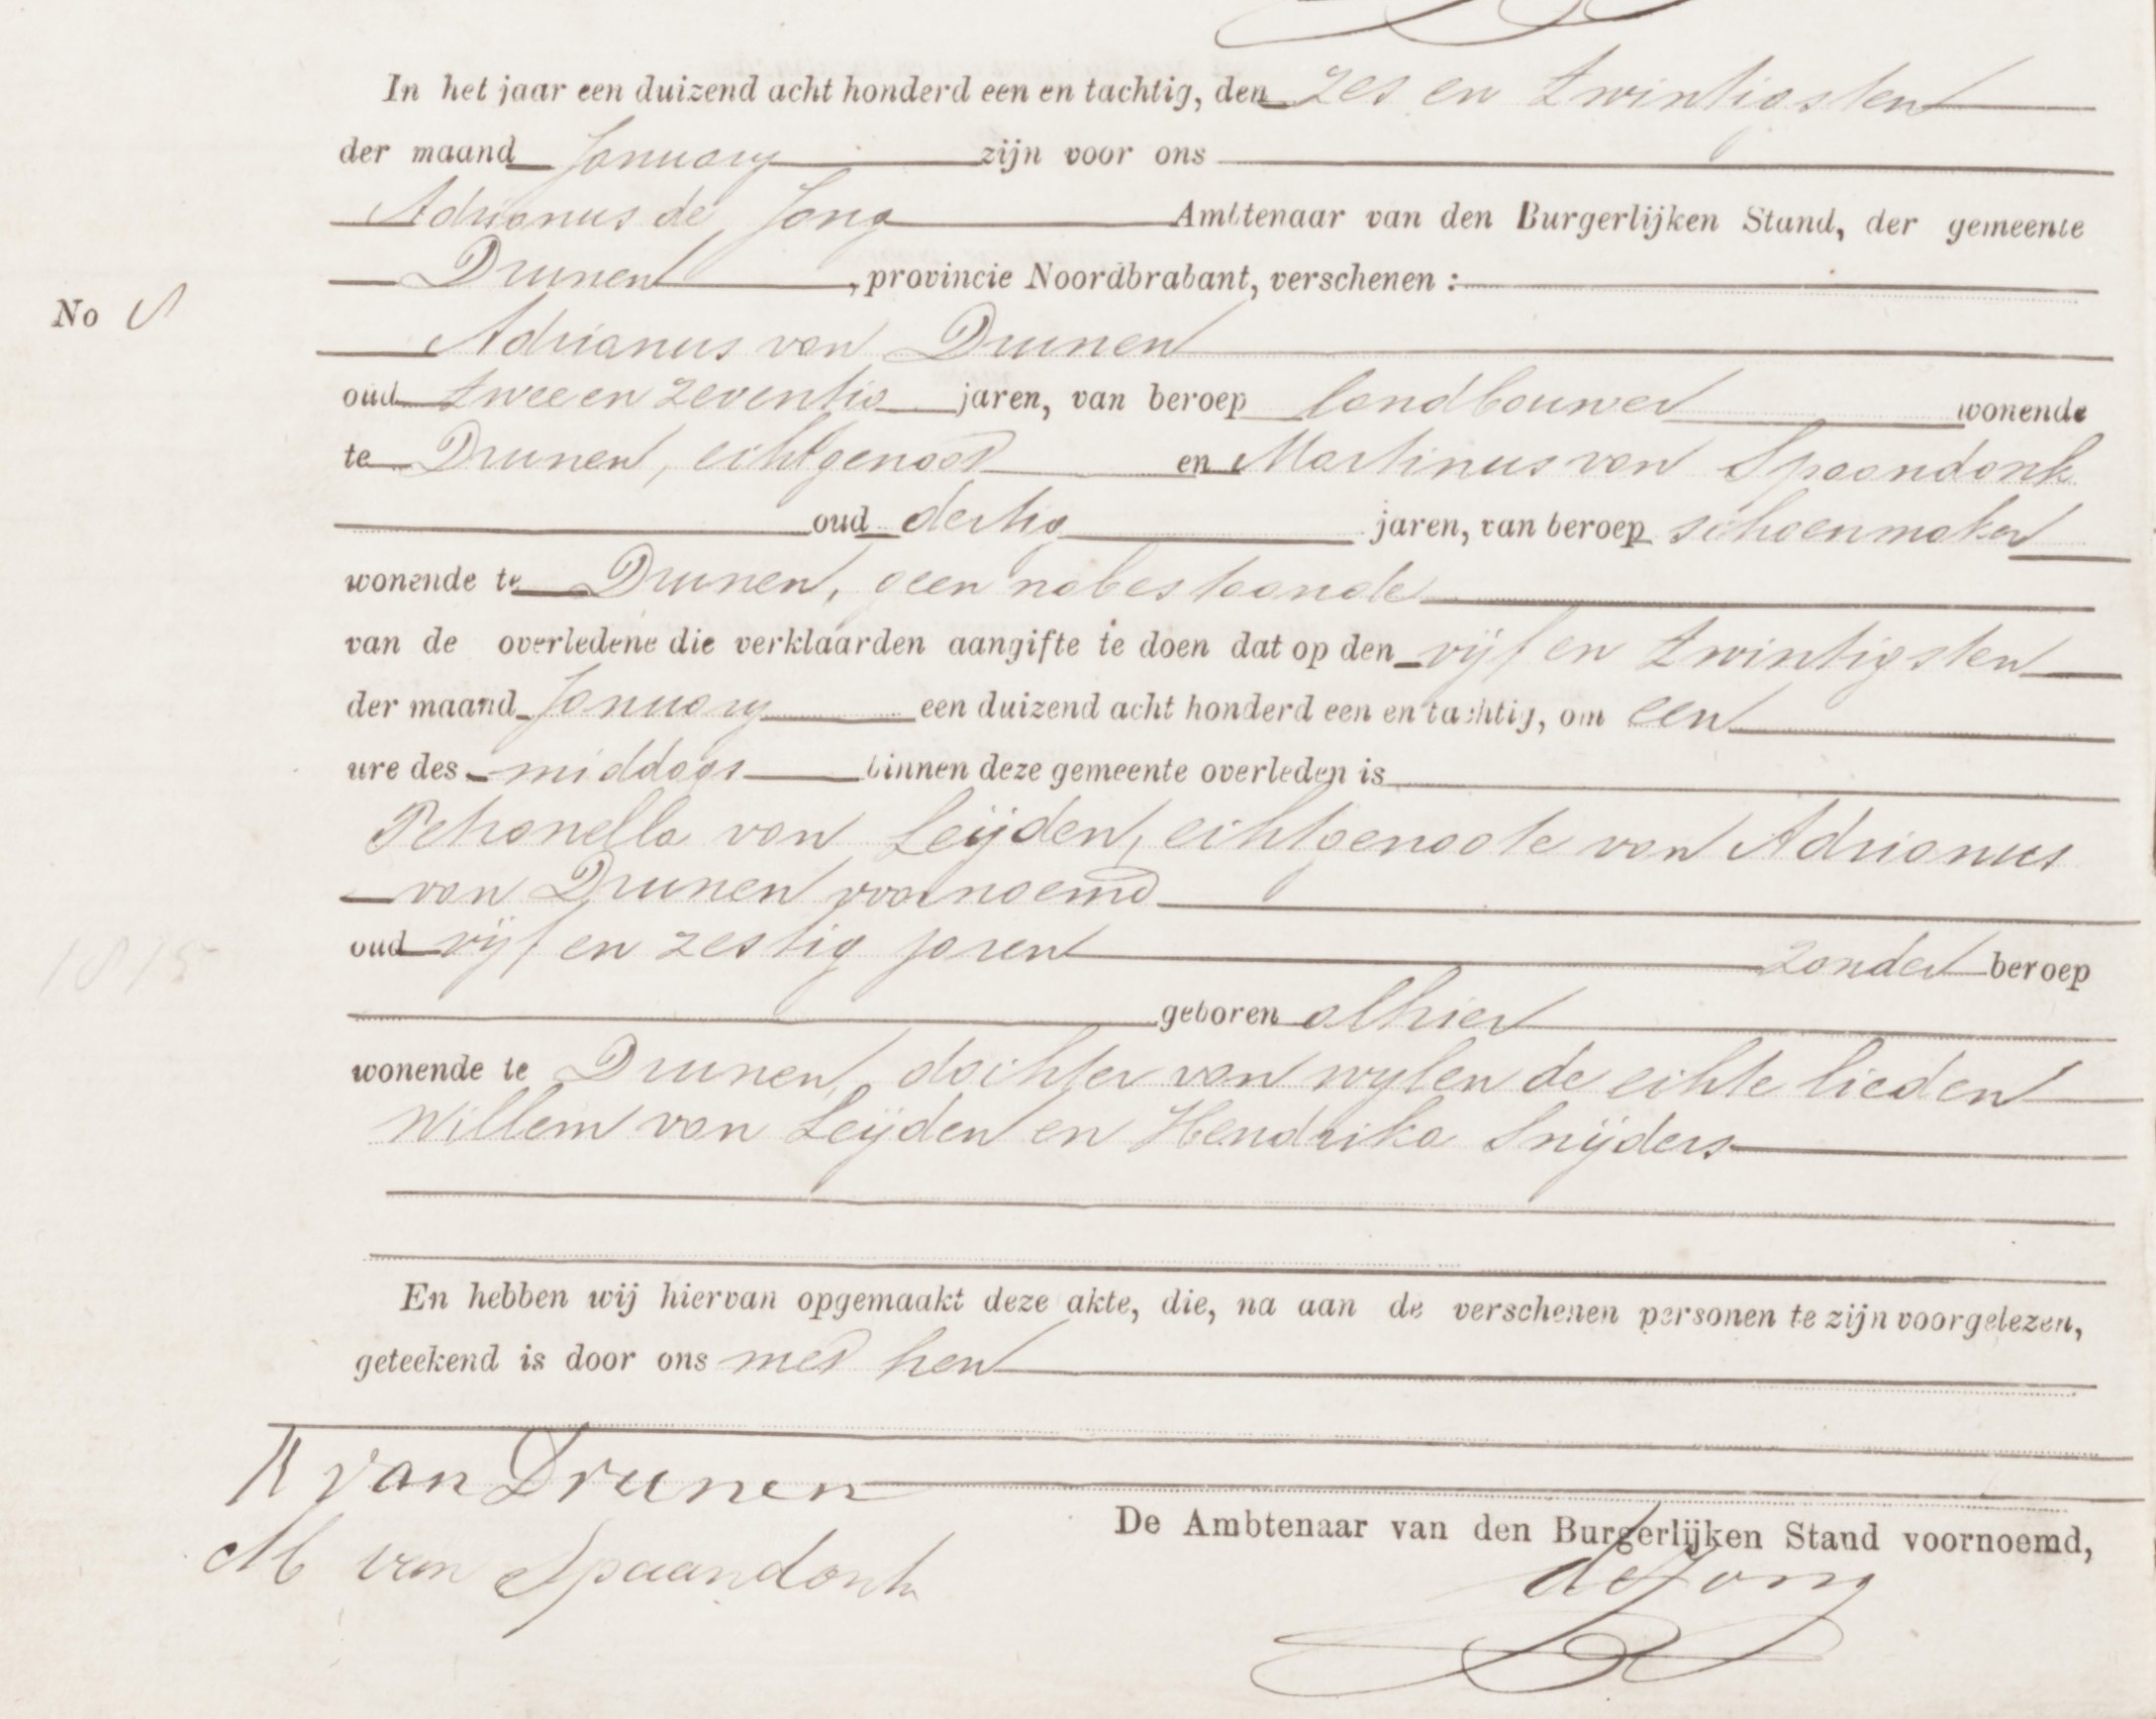 In het jaar een duizend acht honderd een en tachtig, den zes en twintigsten
der maand January zijn voor ons
Adrianus de Jong Ambtenaar van den Burgerlijken Stand, der gemeente
Drunen, provincie Noordbrabant, verschenen :
No
Adrianus van Drunen
oud twee en zeventig jaren, van beroep landbouwer wonende
te Drunen, echtgenoot en Martinus van Spaandonk
oud dertig jaren, van beroep schoenmaker
wonende te Drunen, geen nabestaande
van de overledene die verklaarden aangifte te doen dat op den vijf en twintigsten
der maand January een duizend acht honderd een en tachtig, om een
ure des middags binnen deze gemeente overleden is
Petronella van Leijden, echtgenoote van Adrianus
van Drunen voornoemd
oud vijf en zestig jaren zonder beroep
1815
geboren alhier
wonende te Drunen, dochter van wylen de echte lieden
Willem van Leijden en Hendrika Snijders
En hebben wij hiervan opgemaakt deze akte, die, na aan de verschenen personen te zijn voorgelezen,
geteekend is door ons met hen
A van Drunen
M van Spaandonk
De Ambtenaar van den Burgerlijken Stand voornoemd,
de Jong